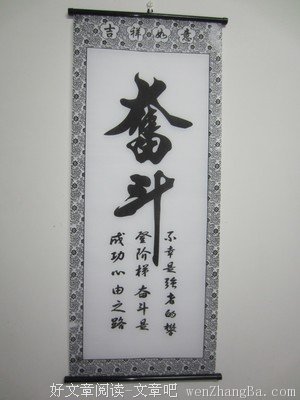 吉祥如意
奮斗
不幸是强者的攀
登阶梯 奋斗是
成功必由之路
好文章阅读-文章吧 wenZhangBa.com